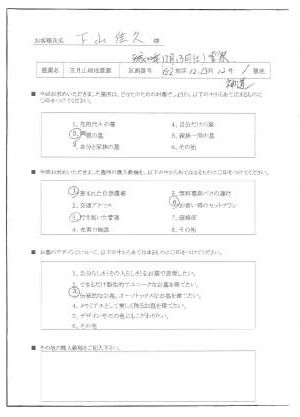 お客様氏名 下山佳久 様
霊園名 五月山緑地霊園 区画番号
■ 今回お求めいただきました墓所は、どなたのためのお墓でしょうか。以下の中からあてはまるものに
○印をつけてください。
1. 先祖代々の墓
4. 自分だけの墓
5. 親族一同の墓
3. 自分と家族の墓
6. その他
■ 今回お求めいただきました墓所の購入動機を、以下の中からあてはまるものに○印をつけてください。
1. 恵まれた自然環境
5. 無料霊園バスの運行
2. 交通アクセス
6. お買い得のセットプラン
3. 行き届いた管理
7. 価格面
4. 充実の施設
8. その他
■ お墓のデザインについて、以下の中からあてはまるものに○印をつけてください。
1. 自分らしさ(その人らしさ)をお墓で表現したい。
2. できるだけ個性的でユニークなお墓を建てたい。
3. 伝統的なお墓、オーソドックスなお墓を建てたい。
4. メモリアルとして美しく残るお墓を建てたい。
5. デザインや石の色にもこだわりたい。
6. その他
■ その他の購入動機をご記入下さい。